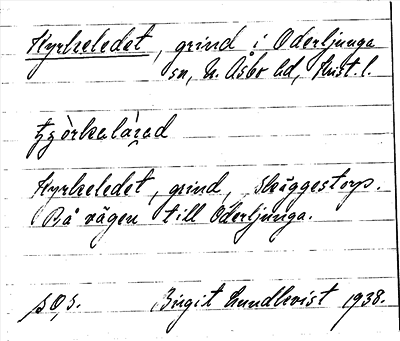 Kyrkeledet, grind i Oderljunga
sn, N. Åsbo hd, Krist. l.
Kyrkeledet, grind, Skäggestorp.
På vägen till Oderljunga.
s. 03. Birgit Lundkvist 1938.